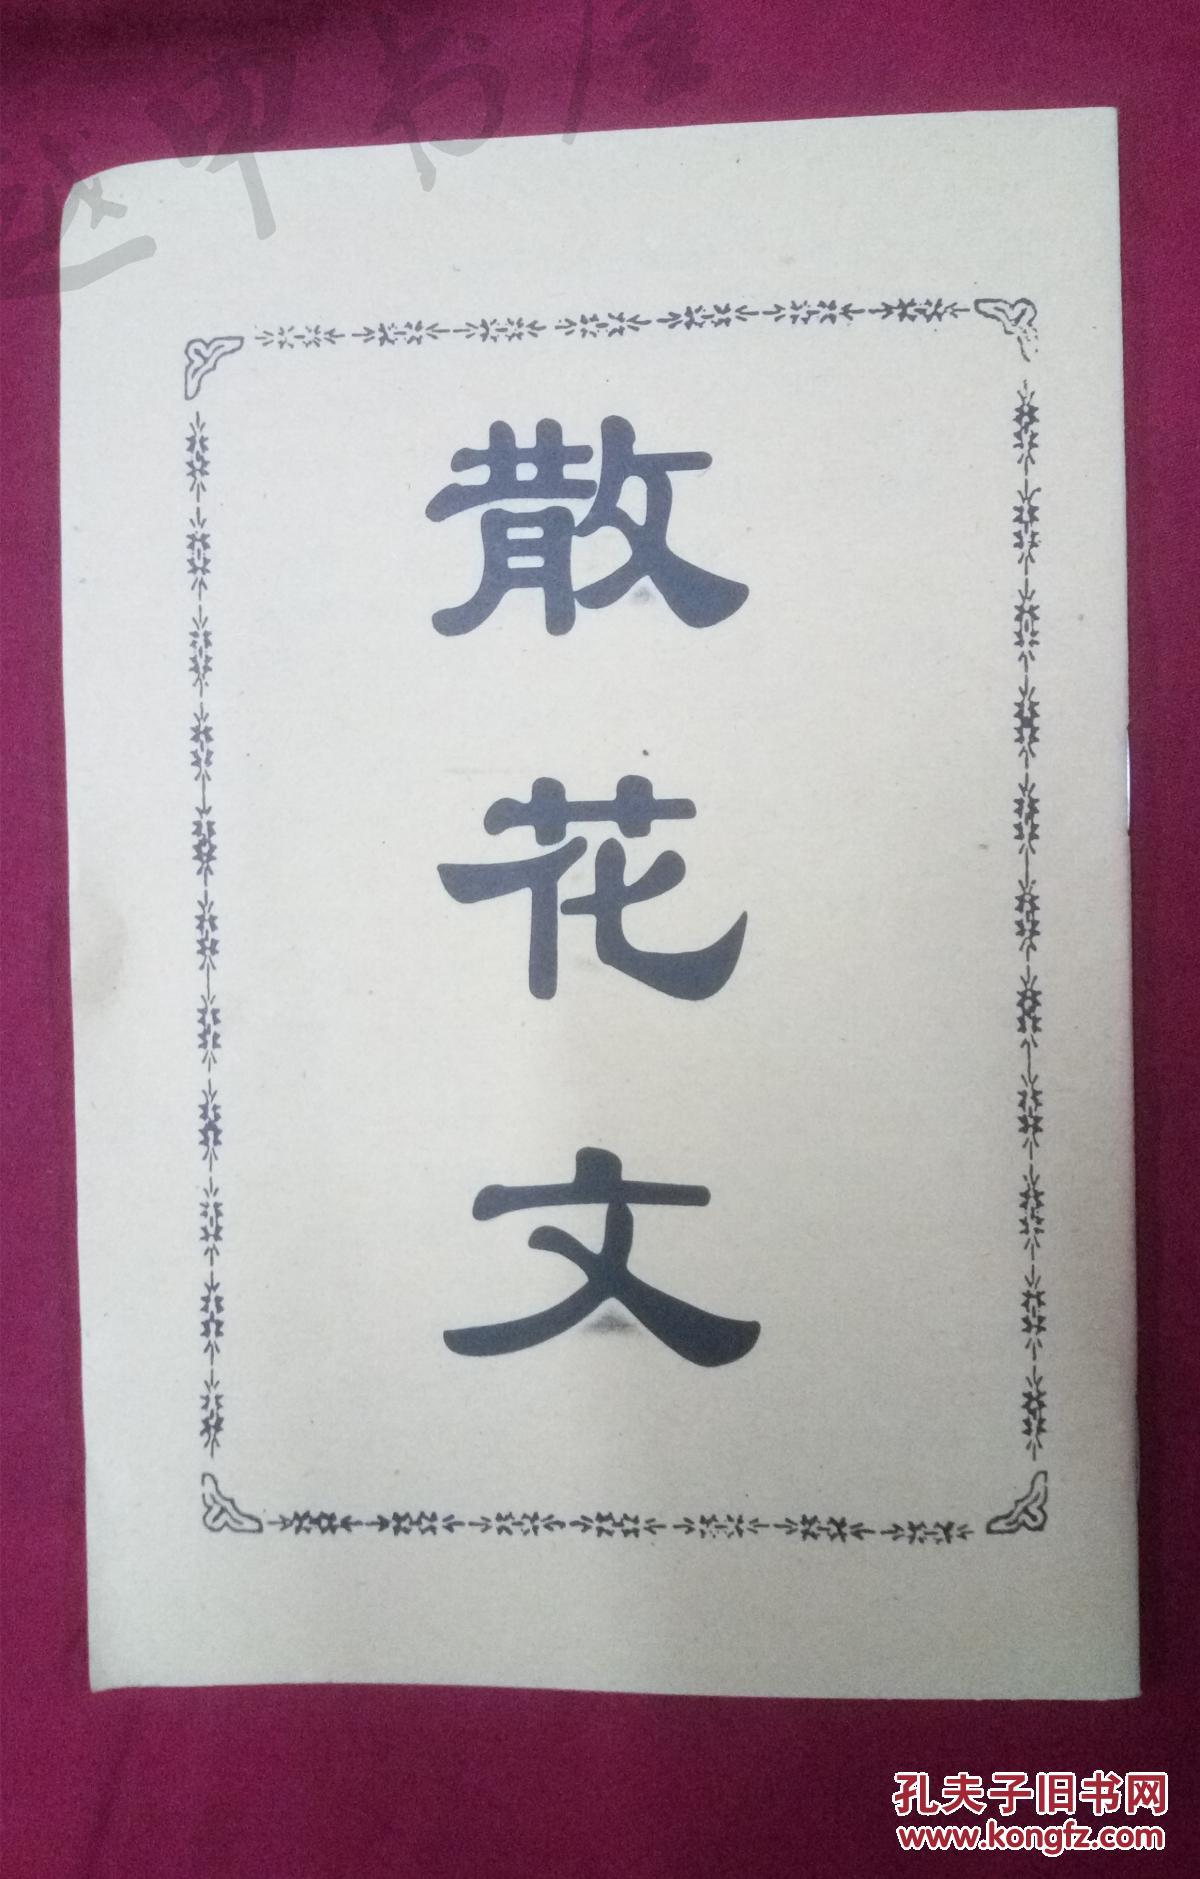 越甲书屋
散花文
孔夫子旧书网
www.kongfz.com